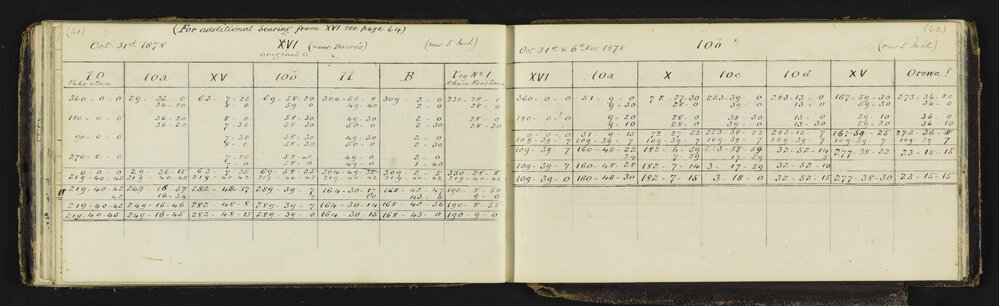 (61)
(For additional bearing from XVI see page 64)
Oct. 31st 1878 XVI (near Dacres) (new 5 Inch)
original
10 10a XV 10b 11 B Peg No 1
Pukeatua
360-0-0 29-36-0 63-7-20 69-58-20 304-50-0 309-2-0 330-28-0
36-20 7-0 59-0 49-40 2-0 28-0
180-0-0 36-20 8-0 58-30 49-30 2-0 28-0
36-20 7-30 58-30 50-0 2-30 28-30
90-0-0 7-30 58-30 49-30 2-0
8-0 58-30 50-0 2-30
270-0-0 7-20 58-20 49-0 2-0
7-0 58-0 49-0 1-40
0-0-0 29-36-15 63-7-35 69-58-25 304-49-35 309-2-5 330-28-8
219-40-42 219-40-42 219-40-42 219-40-42 219-40-42 219-40-42 219-40-42
219-40-42 249-16-57 282-48-17 289-39-7 164-30-17 168-42-47 190-8-50
42 16-34 7 10 43-6 9-0
219-40-42 249-16-46 282-48-8 289-39-7 164-30-14 168-42-56 190-8-55
219-40-45 249-16-45 282-48-15 289-39-0 164-30-15 168-43-0 190-9-0
(62)
Oct 31st & 6th Nov 1878 10b (new 5 Inch)
XVI 10a X 10c 10d XV Orewa
360-0-0 51-9-0 72-27-30 253-39-0 283-13-0 167-59-30 273-36-20
9-30 28-0 39-0 13-0 59-30 36-0
180-0-0 9-20 28-0 38-30 13-0 59-10 36-0
9-10 28-0 39-0 13-30 59-30 36-10
0-0-0 51-9-15 72-27-52 253-38-52 283-13-7 167-59-25 273-36-8
109-39-7 109-39-7 109-39-7 109-39-7 109-39-7 109-39-7 109-39-7
109-39-7 160-48-22 182-6-59 3-17-59 32-52-14 277-38-32 23-15-15
34 7-29 17-59
109-39-7 160-48-28 182-7-14 3-17-59 32-52-14
109-39-0 160-48-30 182-7-15 3-18-0 32-52-15 277-38-30 23-15-15